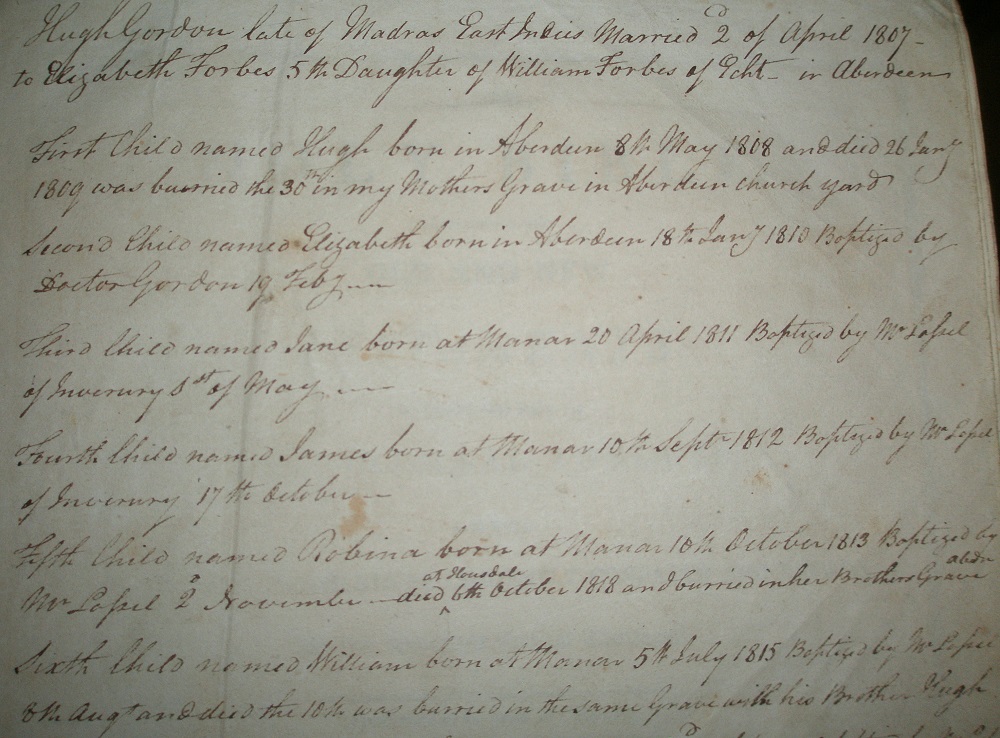 Hugh Gordon late of Madras East Indies Married 2d of April 1807
to Elizabeth Forbes 5th Daughter of William Forbes of Echt - in Aberdeen
First Child named Hugh born in Aberdeen 8th May 1808 and died 26 Jany
1809 was burried the 30th in my Mothers Grave in Aberdeen church yard
Second Child named Elizabeth born in Aberdeen 18th Jany 1810 Baptized by
Doctor Gordon 19 Feby
Third Child named Jane born at Manar 20 April 1811 Baptized by Mr
of Inverury of May
Fourth Child named James born at Manar 10th Septr 1812 Baptized by Mr
of Inverury 17th October
Fifth Child named Robina born at Manar 10th October 1813 Baptized by
Mr 2d November died at 6th October 1818 and burried in her Brothers Grave abdn
Sixth Child named William born at Manar 5th July 1815 Baptized by Mr
8th Augt and died the 10th was burried in the same Grave with his Brother Hugh